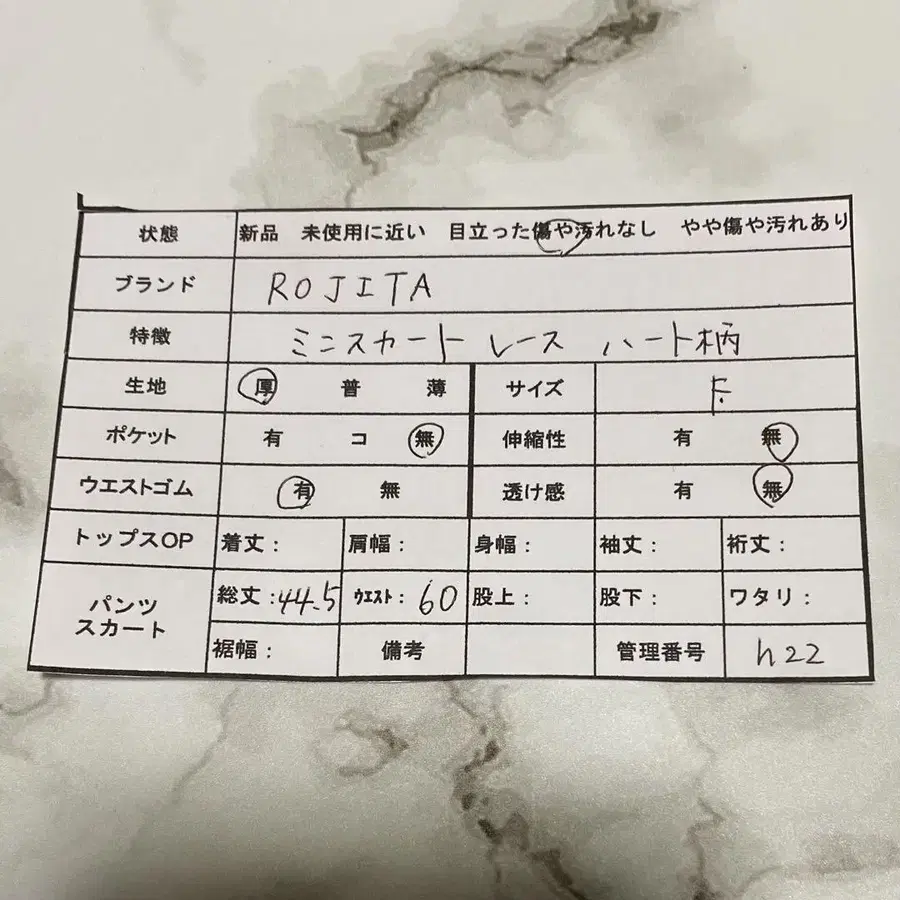 状態 新品 未使用に近い 目立った傷や汚れなし やや傷や汚れあり
ブランド ROJITA
特徴 ミニスカート レース ハート柄
生地 厚 普 薄 サイズ F.
ポケット 有 コ 無 伸縮性 有 無
ウエストゴム 有 無 透け感 有 無
トップスOP 着丈: 肩幅: 身幅: 袖丈: 裄丈:
パンツ スカート 総丈:44.5 ウエスト:60 股上: 股下: ワタリ:
裾幅: 備考 管理番号 h22